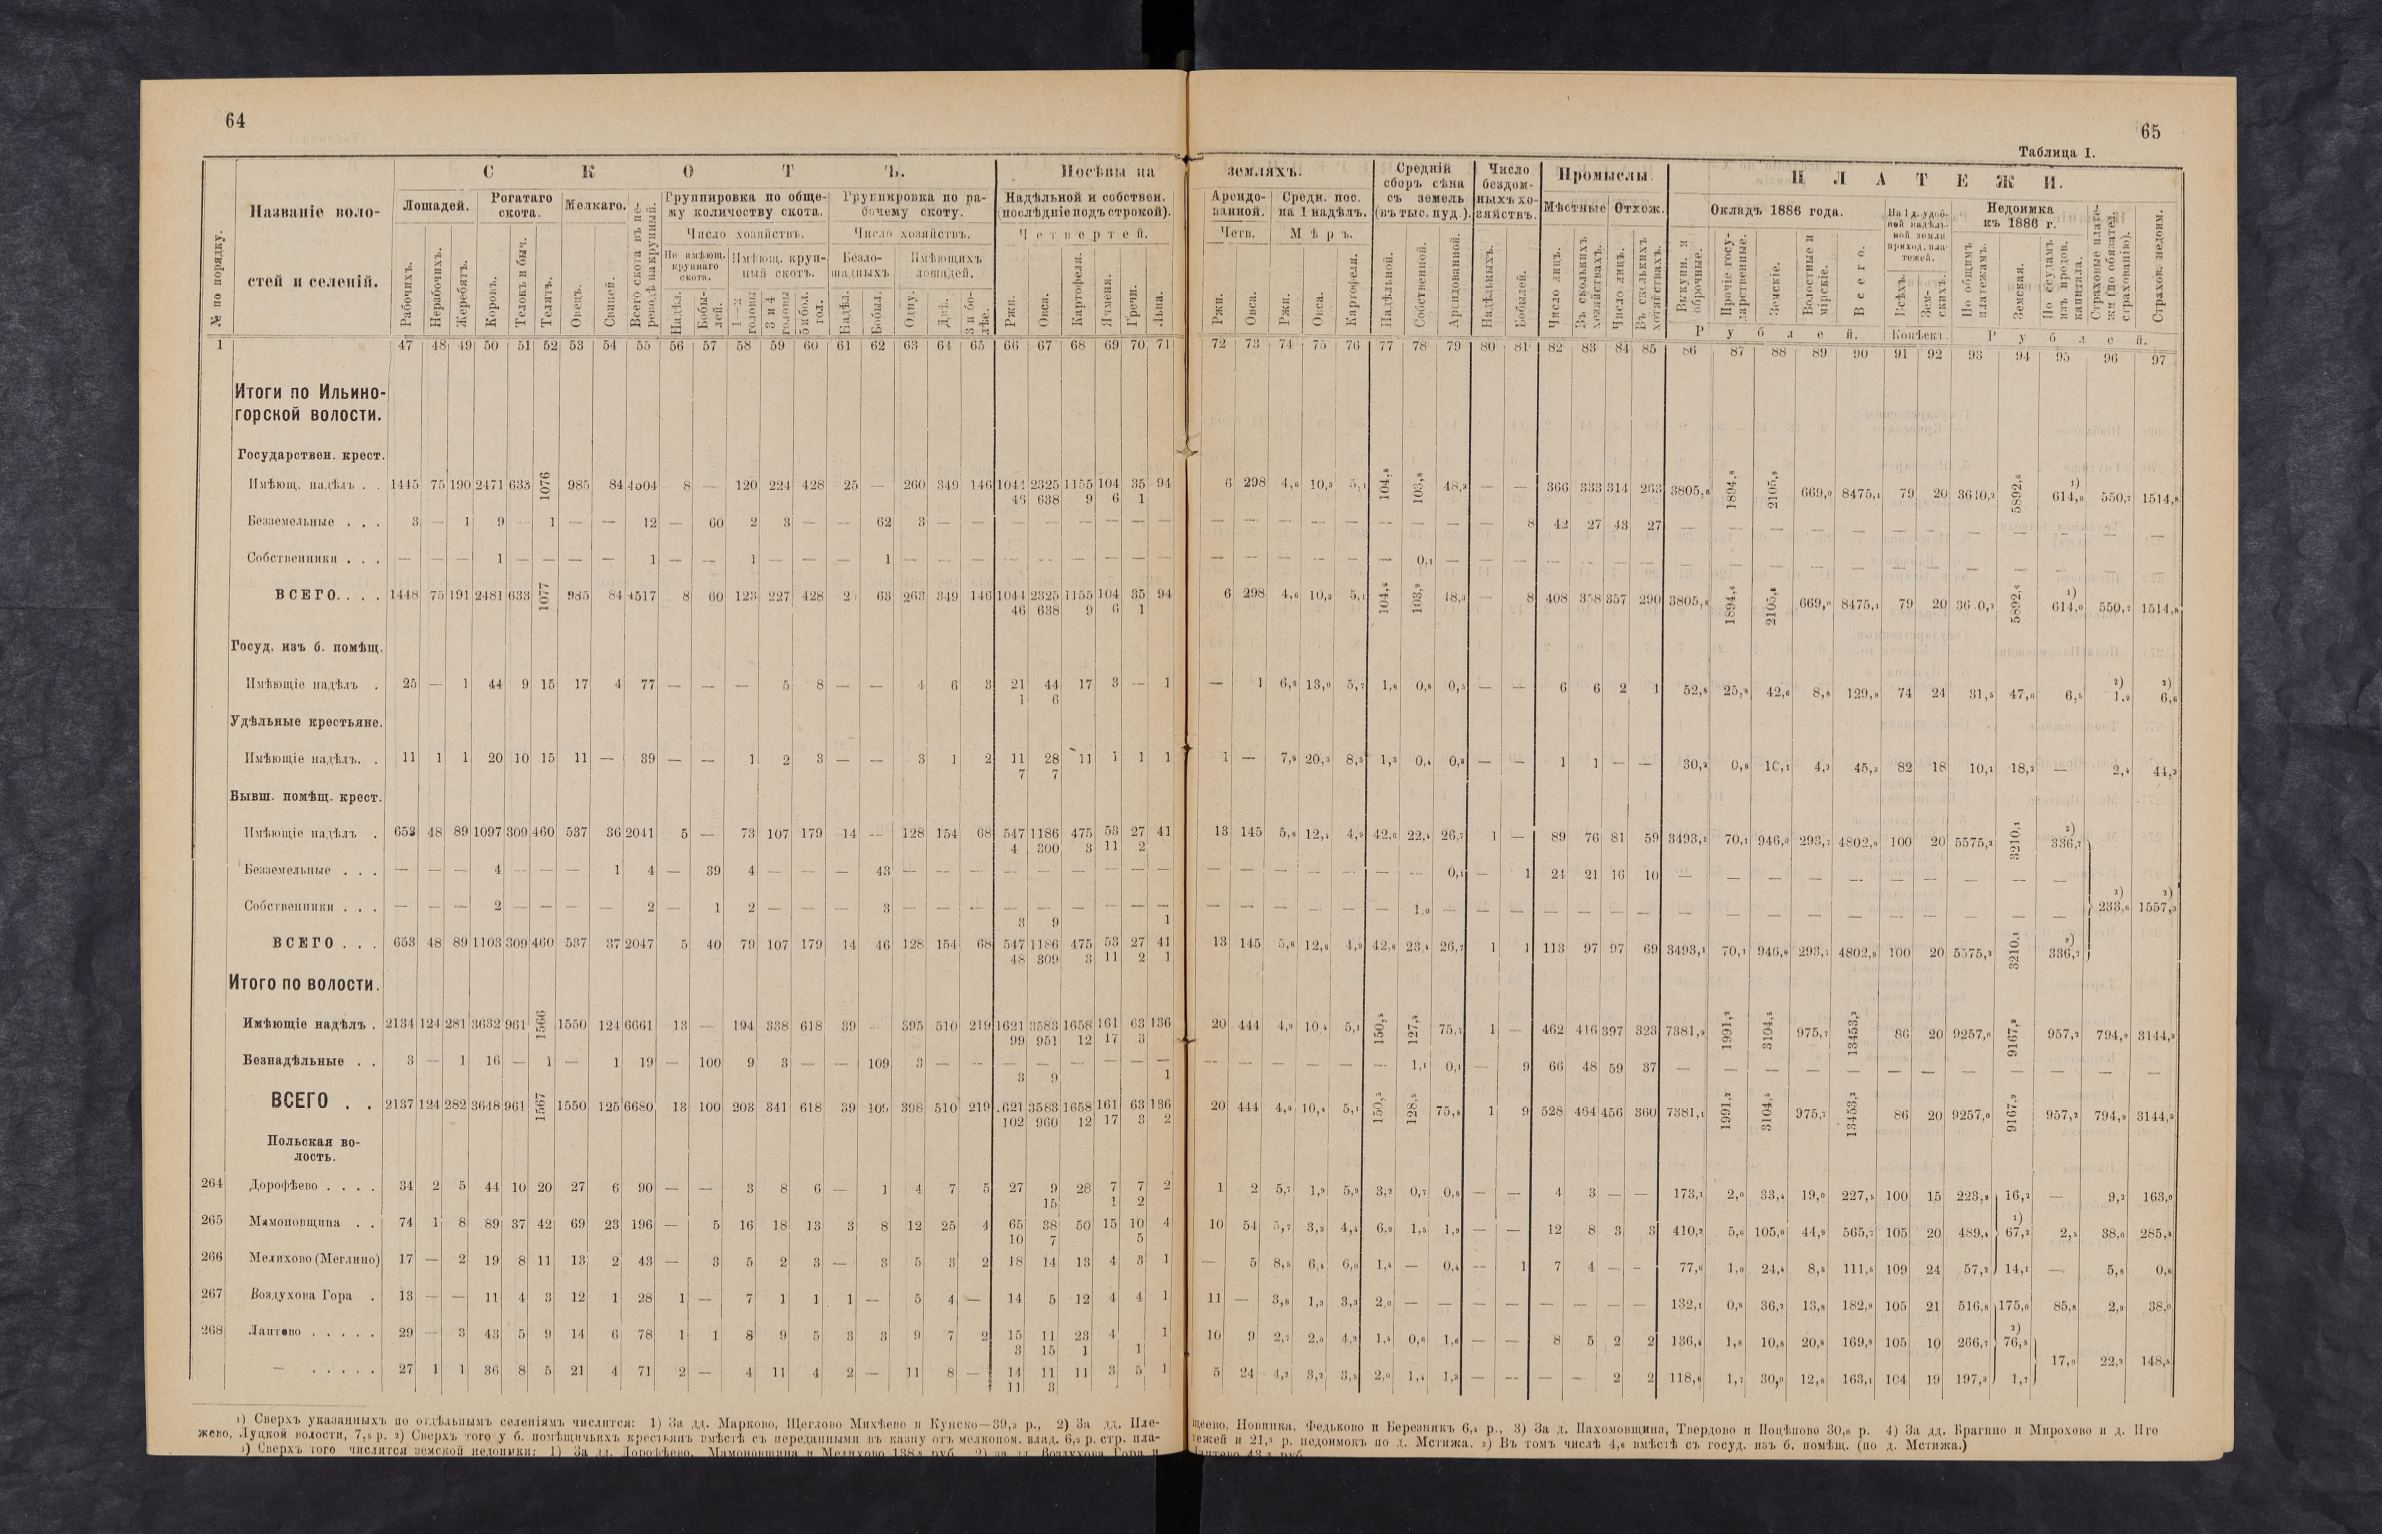 64
65
Таблица I.
№ по порядку.
Названіе воло-
стей и селеній.
С К О Т Ъ.
Посѣвы на
земляхъ.
Средній сборъ сѣна съ земель (въ тыс. пуд.).
Число бездом-ныхъ хо-зяйствъ.
Промыслы.
П Л А Т Е Ж И.
Лошадей.
Рогатаго скота.
Мелкаго.
Всего скота въ пе-реводѣ на крупный.
Группировка по обще-му количеству скота.
Группировка по ра-бочему скоту.
Надѣльной и собствен. (послѣдніе подъ строкой).
Арендо-ванной.
Средн. пос. на 1 надѣлъ.
Мѣстные
Отхож.
Окладъ 1886 года.
На 1 д. удоб-ной надѣль-ной земли приход. пла-тежей.
Недоимка къ 1886 г.
Страховые плате-жи (по обязател. страхованію).
Страхов. недоим.
Число хозяйствъ.
Число хозяйствъ.
Четвертей.
Четв.
Мѣръ.
Не имѣющ. крупнаго скота.
Имѣющ. круп-ный скотъ.
Безло-шадныхъ
Имѣющихъ лошадей.
Рабочихъ. Нерабочихъ. Жеребятъ. Коровъ. Телокъ и быч. Телятъ. Овецъ. Свиней. Надѣл. Бобы-лей. 1—2 головы 3 и 4 головы 5 и бол. гол. Надѣл. Бобыл. Одну. Двѣ. 3 и бо-лѣе. Ржи. Овса. Картофеля. Ячменя. Гречи. Льна.
Ржи. Овса. Ржи. Овса. Картофеля. Надѣльной. Собственной. Арендованной. Надѣльныхъ. Бобылей. Число лицъ. Въ сколькихъ хозяйствахъ. Число лицъ. Въ сколькихъ хозяйствахъ. Выкупн. и оброчные. Прочіе госу-дарственные. Земскіе. Волостные и мірскіе. Всего. Всѣхъ. Зем-скихъ. По общимъ платежамъ. Земская. По ссудамъ изъ продов. капитала.
Рублей. Копѣек. Рублей.
1 47 48 49 50 51 52 53 54 55 56 57 58 59 60 61 62 63 64 65 66 67 68 69 70 71 72 73 74 75 76 77 78 79 80 81 82 83 84 85 86 87 88 89 90 91 92 93 94 95 96 97
Итоги по Ильино-
горской волости.
Государствен. крест.
Имѣющ. надѣлъ . . 1445 75 190 2471 633 1076 985 84 4504 8 — 120 224 428 25 — 260 349 146 1044 2325 1155 104 35 94 6 298 4,6 10,3 5,1 104,8 103,8 48,3 — — 366 333 314 263 3805,8 1894,8 2105,8 669,0 8475,1 79 20 5892,6 ¹) 614,0 550,7 1514,8
46 638 9 6 1
Безземельные . . . 3 — 1 9 — 1 — — 12 — 60 2 3 — — 62 3 — — — — — — — — — — — — — — — — — 8 42 27 43 27 — — — — — — — — — — — —
Собственники . . . — — — 1 — — — — 1 — — 1 — — — 1 — — — — — — — — — — — — — — — 0,1 — — — — — — — — — — — — — — — — — — —
ВСЕГО. . . . 1448 75 191 2481 633 1077 985 84 4517 8 60 123 227 428 25 63 263 349 146 1044 2325 1155 104 35 94 6 298 4,6 10,3 5,1 104,8 103,9 48,3 — 8 408 358 357 290 3805,8 1894,6 2105,8 669,0 8475,1 79 20 5892,6 ¹) 614,0 550,7 1514,8
46 638 9 6 1
Госуд. изъ б. помѣщ.
Имѣющіе надѣлъ . 25 — 1 44 9 15 17 4 77 — — — 5 8 — — 4 6 3 21 44 17 3 — 1 — 1 6,8 13,0 5,7 1,8 0,8 0,5 — — 6 6 2 1 52,8 25,8 42,6 8,8 129,8 74 24 31,5 47,0 6,5 ²) 1,9 ²) 6,6
1 6
Удѣльные крестьяне.
Имѣющіе надѣлъ. . 11 1 1 20 10 15 11 — 39 — — 1 2 3 — — 3 1 2 11 28 11 1 1 1 1 — 7,8 20,3 8,3 1,3 0,4 0,8 — — 1 1 — — 30,2 0,8 10,1 4,2 45,3 82 18 10,1 18,2 — 2,4 44,3
7 7
Бывш. помѣщ. крест.
Имѣющіе надѣлъ . 653 48 89 1097 309 460 537 36 2041 5 — 73 107 179 14 — 128 154 68 547 1186 475 53 27 41 13 145 5,6 12,4 4,9 42,6 22,4 26,7 1 — 89 76 81 59 3493,1 70,1 946,0 293,7 4802,9 100 20 5575,2 3210,1 ³) 336,7
4 300 3 11 2
Безземельные . . . — — — 4 — — — 1 4 — 39 4 — — — 43 — — — — — — — — — — — — — — — — 0,1 — 1 24 21 16 10 — — — — — — — — — —
Собственники . . . — — — 2 — — — — 2 — 1 2 — — — 3 — — — — — — — — — — — — — — — 1,0 — — — — — — — — — — — — — — — — — ²) 233,6 ²) 1557,3
3 9 1
ВСЕГО . . . 653 48 89 1103 309 460 537 37 2047 5 40 79 107 179 14 46 128 154 68 547 1186 475 53 27 41 13 145 5,6 12,6 4,9 42,6 23,4 26,7 1 1 113 97 97 69 3493,1 70,1 946,0 293,7 4802,9 100 20 5575,2 3210,1 ³) 336,7
48 309 3 11 2 1
Итого по волости.
Имѣющіе надѣлъ . 2134 124 281 3632 961 1566 1550 124 6661 13 — 194 338 618 39 — 395 510 219 1621 3583 1658 161 63 136 20 444 4,9 10,4 5,1 150,5 127,5 75,7 1 — 462 416 397 323 7381,9 1991,3 3104,5 975,7 13453,3 86 20 9257,0 9167,9 957,2 794,9 3144,3
99 951 12 17 3
Безнадѣльные . . 3 — 1 16 — 1 — 1 19 — 100 9 3 — — 109 3 — — — — — — — — — — — — — — 1,1 0,1 — 9 66 48 59 37 — — — — — — — — — — — —
3 9 1
ВСЕГО . . 2137 124 282 3648 961 1567 1550 125 6680 13 100 203 341 618 39 109 398 510 219 1621 3583 1658 161 63 136 20 444 4,9 10,4 5,1 150,5 128,5 75,8 1 9 528 464 456 360 7381,1 1991,3 3104,5 975,7 13453,3 86 20 9257,0 9167,9 957,2 794,9 3144,3
102 960 12 17 3 2
Польская во-
лость.
264 Дорофѣево . . . . 34 2 5 44 10 20 27 6 90 — — 3 8 6 — 1 4 7 5 27 9 28 7 7 2 1 2 5,7 1,9 5,9 3,2 0,7 0,8 — — 4 3 — — 173,1 2,0 33,4 19,0 227,5 100 15 223,9 16,2 — 9,2 163,0
15 1 2
265 Мамоновщина . . 74 1 8 89 37 42 69 23 196 — 5 16 18 13 3 8 12 25 4 65 38 50 15 10 4 10 54 5,7 3,3 4,4 6,9 1,5 1,9 — — 12 8 3 3 410,2 5,6 105,0 44,9 565,7 105 20 489,4 ¹) 67,2 2,5 38,0 285,4
10 7 5
266 Мелихово (Меглино) 17 — 2 19 8 11 13 2 43 — 3 5 2 3 — 3 5 3 2 18 14 13 4 3 1 — 5 8,5 6,4 6,0 1,4 — 0,4 — 1 7 4 — — 77,6 1,0 24,4 8,5 111,5 109 24 57,3 14,1 — 5,8 0,6
267 Воздухова Гора . 13 — — 11 4 3 12 1 28 1 — 7 1 1 1 — 5 4 — 14 5 12 4 4 1 11 — 3,8 1,3 3,3 2,0 — — — — — — — — 132,1 0,8 36,2 13,8 182,9 105 21 516,8 175,0 85,8 2,9 38,0
268 Лаптево . . . . . 29 — 3 43 5 9 14 6 78 1 1 8 9 5 3 3 9 7 2 15 11 23 4 1 10 9 2,7 2,0 4,2 1,4 0,6 1,6 — — 8 5 2 2 136,4 1,8 10,8 20,8 169,8 105 10 266,7 ²) 76,5
3 15 1 1
17,0 22,2 148,5
— . . . . . 27 1 1 36 8 5 21 4 71 2 — 4 11 4 2 — 11 8 — 14 11 11 3 5 1 5 24 4,2 3,2 3,5 2,0 1,4 1,3 — — — — 2 2 118,6 1,7 30,0 12,8 163,1 104 19 197,3 1,7
11 3
¹) Сверхъ указанныхъ по отдѣльнымъ селеніямъ числится: 1) За дд. Марково, Щеглово Михѣево и Кунско—39,3 р., 2) За дд. Пле-щеево, Новинка, Федьково и Березникъ 6,4 р., 3) За д. Пахомовщина, Твердово и Поцѣпово 30,0 р. 4) За дд. Брагино и Мирохово и д. Иго
жево, Луцкой волости, 7,5 р. ²) Сверхъ того у б. помѣщичьихъ крестьянъ вмѣстѣ съ переданными въ казну отъ мелкопом. влад. 6,3 р. стр. пла-тежей и 21,3 р. недоимокъ по д. Мстижа. ³) Въ томъ числѣ 4,6 вмѣстѣ съ госуд. изъ б. помѣщ. (по д. Мстижа.)
¹) Сверхъ того числится земской недоимки: 1) За дд. Дорофѣево, Мамоновщина и Мелихово 138,8 руб. 2) за дд. Воздухова Гора и Лаптево 43,3 руб.